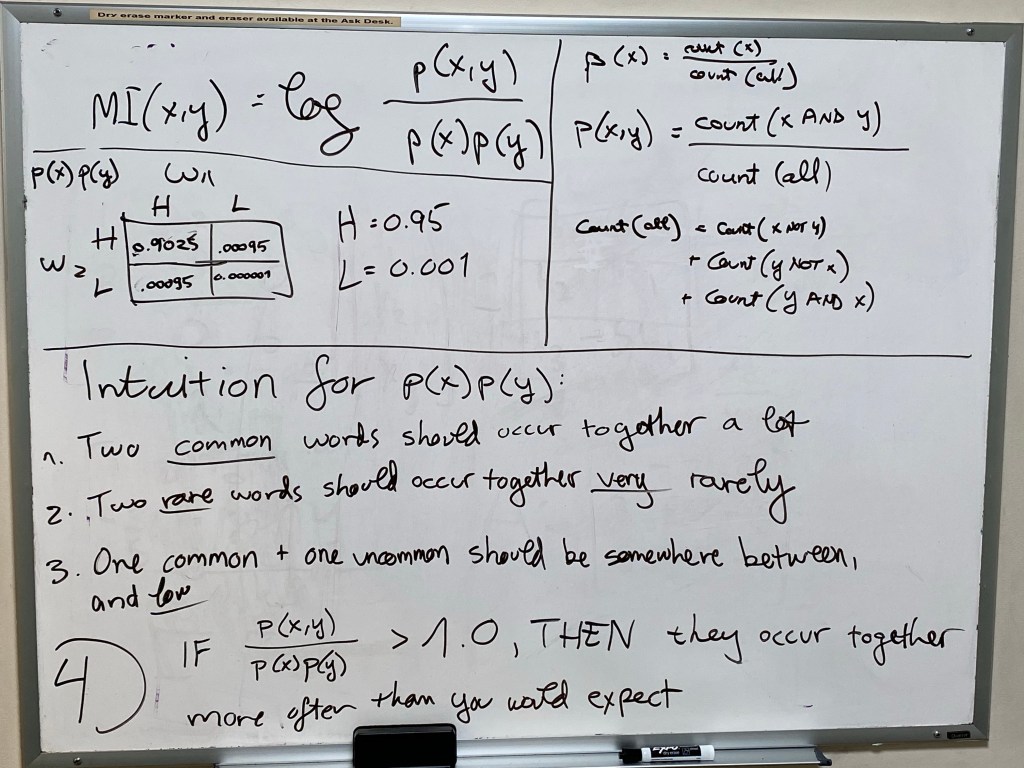 Dry erase marker and eraser available at the Ask Desk.
MI(x,y) = log p(x,y) / p(x)p(y)
p(x) = count (x) / count (all)
p(x,y) = count (x AND y) / count (all)
Count (all) = Count (x NOT y)
+ Count (y NOT x)
+ Count (y AND x)
p(x) p(y) W1
H L
W2 H 0.9025 .00095
L .00095 0.000001
H = 0.95
L = 0.001
Intuition for p(x)p(y):
1. Two common words should occur together a lot
2. Two rare words should occur together very rarely
3. One common + one uncommon should be somewhere between,
and low
4) IF p(x,y) / p(x)p(y) > 1.0, THEN they occur together
more often than you would expect
EXPO